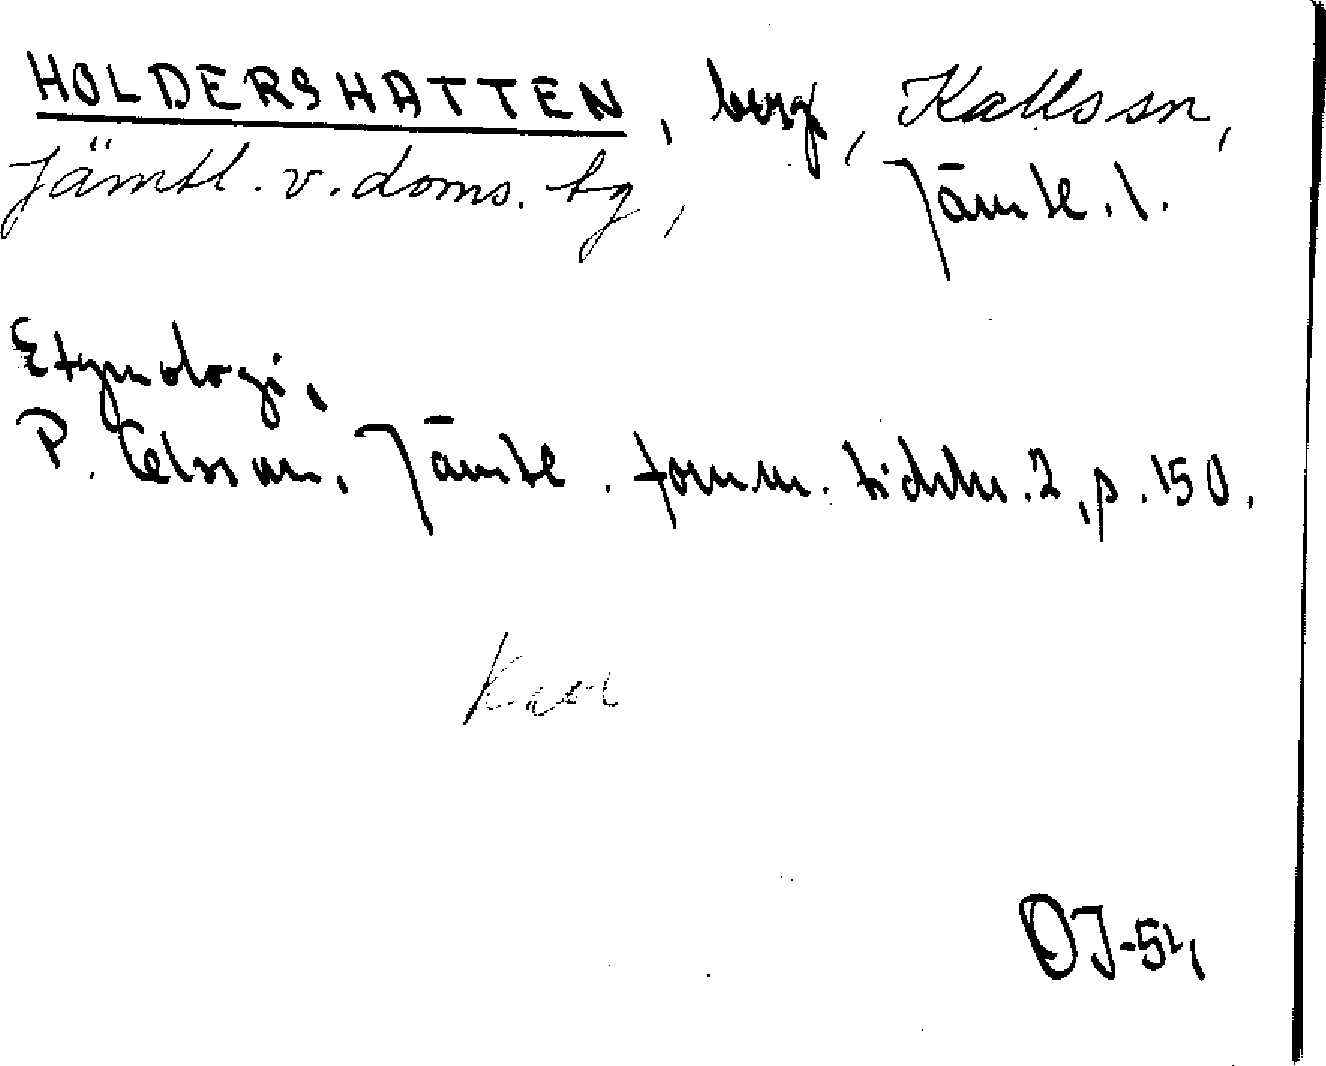 HOLDERSHATTEN, berg, Kallssn,
Jämtl. v. doms. tg, Jämtl. l.
Etymologi,
P. Olsson, Jämtl. fornm. tidskr. 2, p. 150.
OJ-54